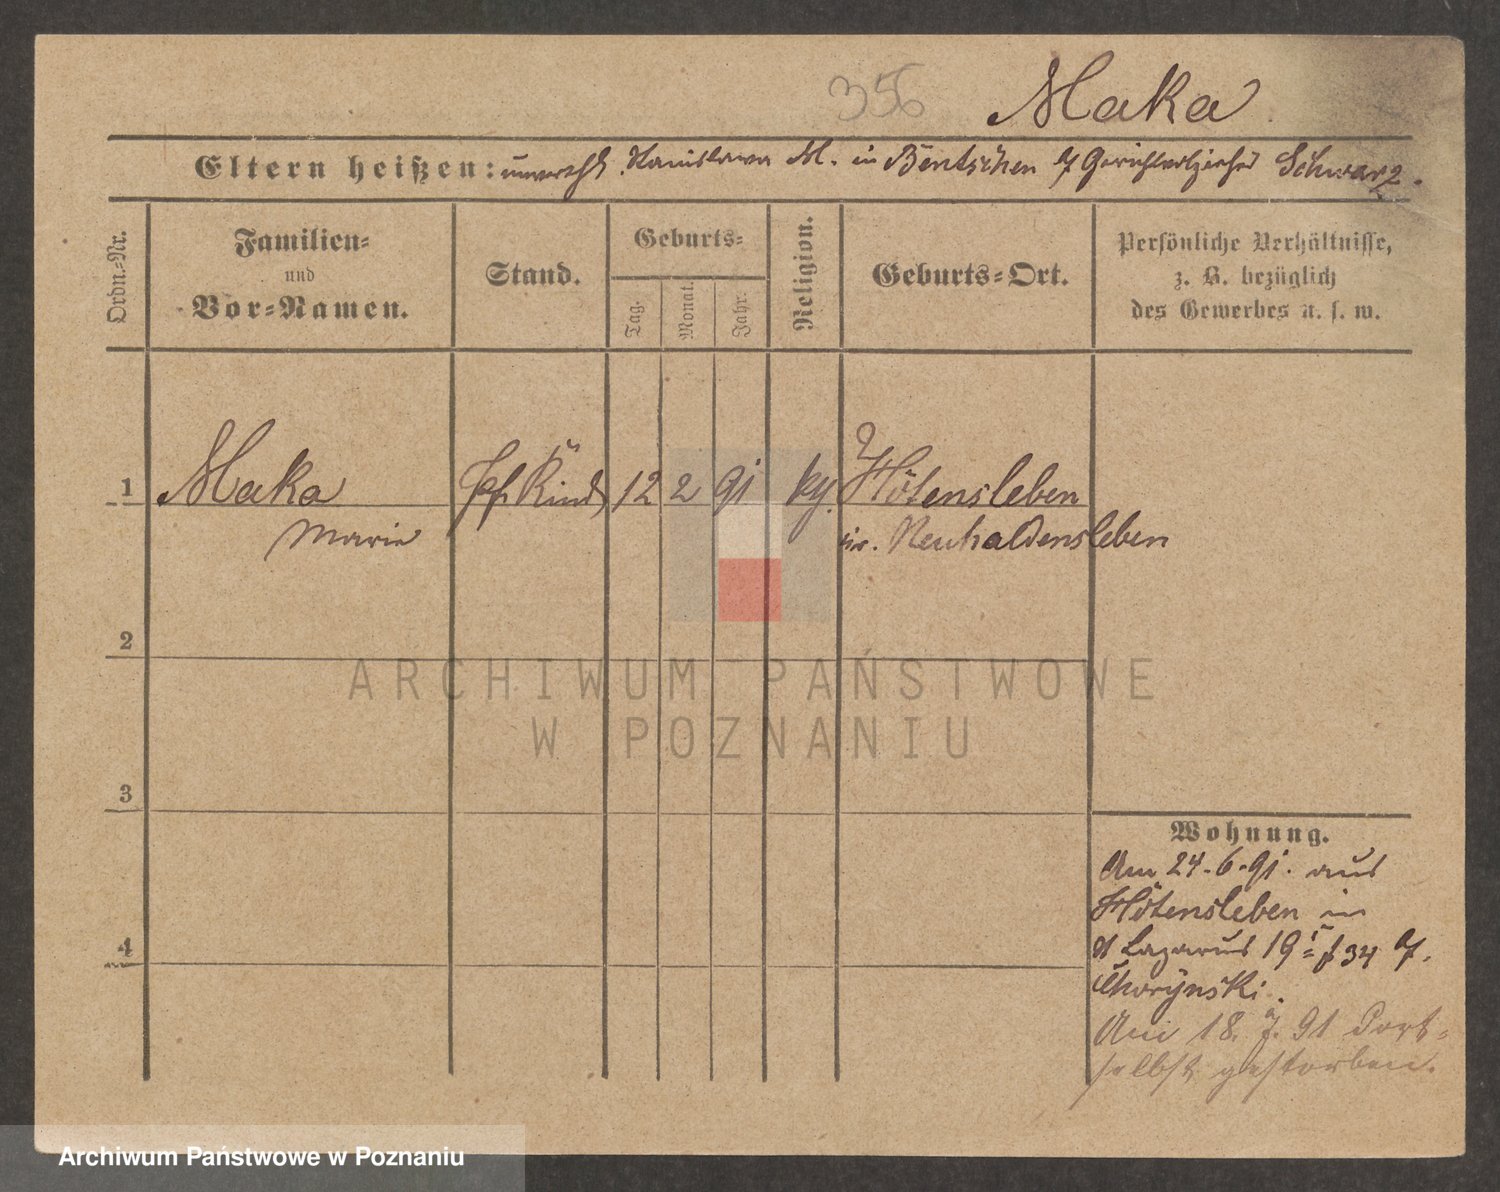 356 Maka
Eltern heißen: unverehl. Stanislawa M. in Bentschen b/ Gerichtsvollzieher Schwarz.
Ordn.-Nr.
Familien-
und
Vor-Namen.
Stand.
Geburts-
Tag.
Monat.
Jahr.
Religion.
Geburts-Ort.
Persönliche Verhältnisse,
z. B. bezüglich
des Gewerbes u. s. w.
1 Maka Kind 12 2 91 kg. Hötensleben
Marie Neuhaldensleben
2
3
4
Wohnung.
Am 24.6.91. aus
Hötensleben in
St Lazarus 19 34 b/.
Chorÿnski.
Am 18. 7. 91 Dort-
selbst gestorben.
ARCHIWUM PAŃSTWOWE
W POZNANIU
Archiwum Państwowe w Poznaniu